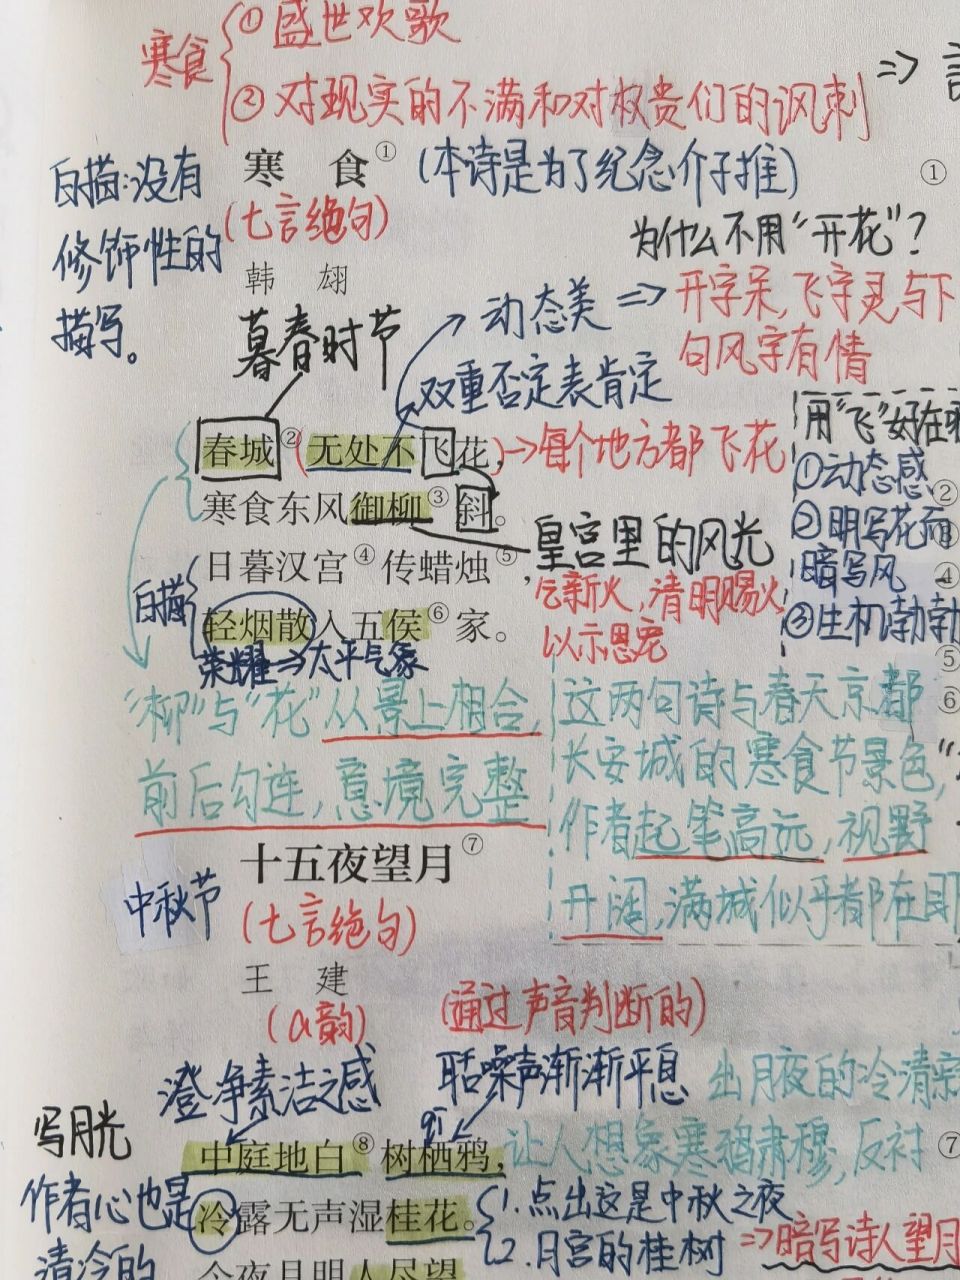 寒食
①盛世欢歌
②对现实的不满和对权贵们的讽刺
=>
寒 食① (本诗是为了纪念介子推)
①
白描:没有
修饰性的
描写。
(七言绝句)
韩 翃
为什么不用“开花”?
动态美 => 开字呆,飞字灵与下
句风字有情
暮春时节
双重否定表肯定
春城②无处不飞花,
→每个地方都飞花
寒食东风御柳③斜。
皇宫里的风光
日暮汉宫④传蜡烛⑤,
乞新火,清明赐火
以示恩宠
白描
轻烟散入五侯⑥家。
荣耀=>太平气象
①动态感
②明写花而
暗写风
③生机勃勃
②
③
④
⑤
⑥
“柳”与“花”从景上相合,
前后勾连,意境完整
这两句诗与春天京都
长安城的寒食节景色,
作者起笔高远,视野
开阔,满城似乎都在
十五夜望月⑦
中秋节
(七言绝句)
王 建
(a韵)
(通过声音判断的)
澄净素洁之感
聒噪声渐渐平息
出月夜的冷清
写月光
中庭地白⑧树栖鸦,
让人想象寒鸦肃穆,反衬
⑦
作者心也是
清冷的
冷露无声湿桂花。
1.点出这是中秋之夜
2.月宫的桂树
=>暗写诗人望月
今夜月明人尽望